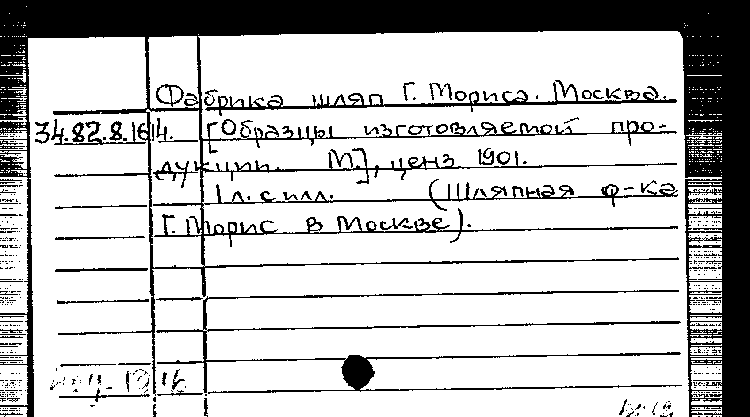 Фабрика шляп Г. Мориса. Москва.
34.82.8.1614. [Образцы изготовляемой про-
дукции. М.], ценз 1901.
1 л. с илл. (Шляпная ф-ка
Г. Морис в Москве).